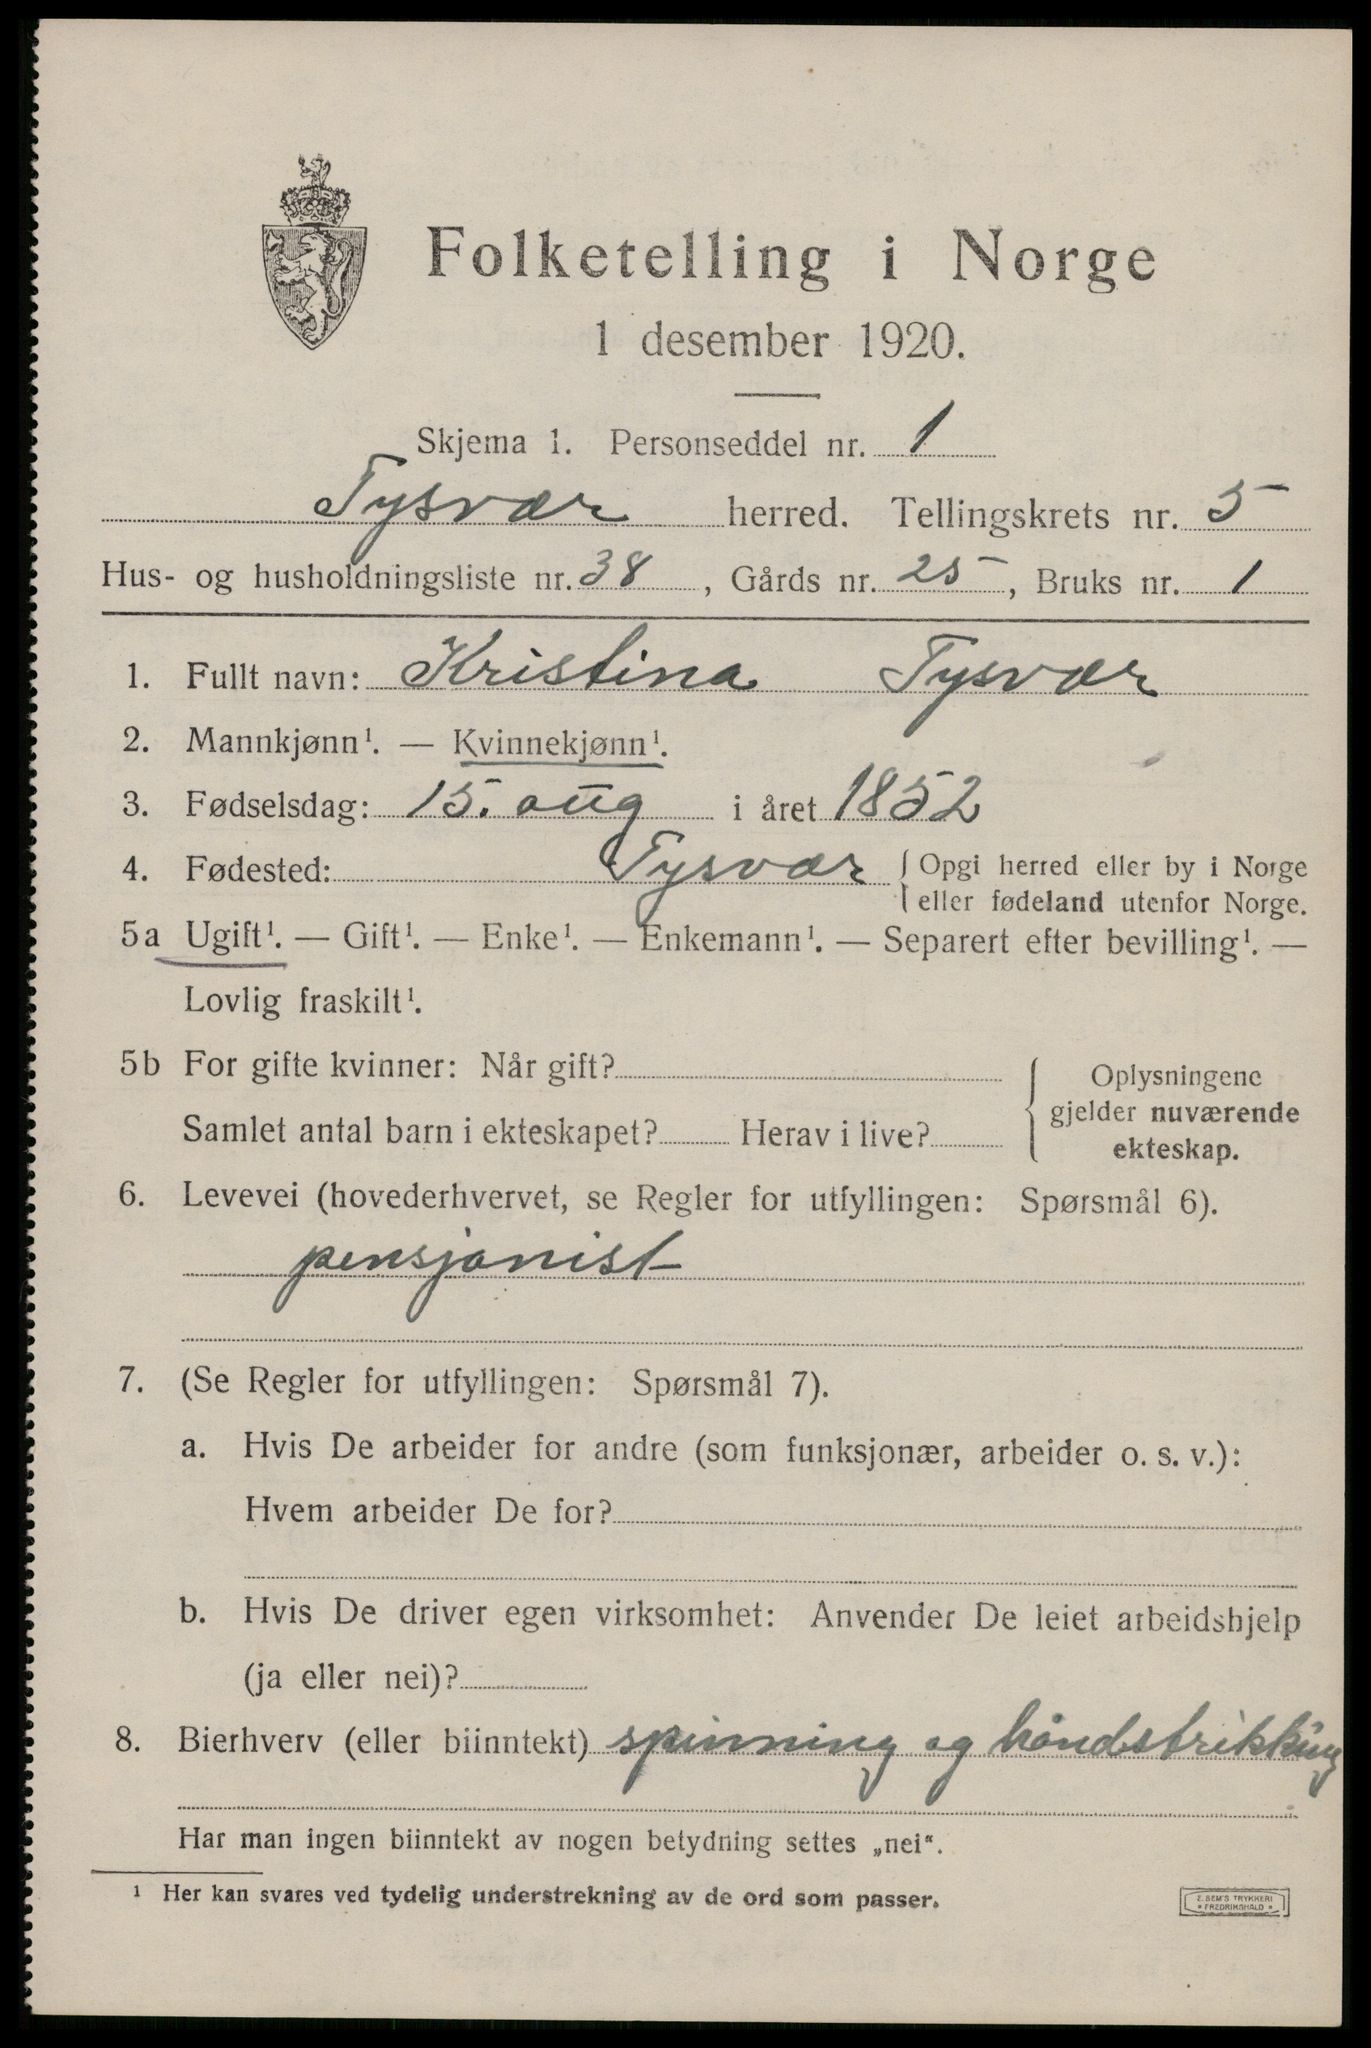 Folketelling i Norge
1 desember 1920.
Skjema 1. Personseddel nr. 1
Tysvær herred. Tellingskrets nr. 5
Hus- og husholdningsliste nr. 38, Gårds nr. 25, Bruks nr. 1
1. Fullt navn: Kristina Tysvær
2. Mannkjønn¹. — Kvinnekjønn¹.
3. Fødselsdag: 15. aug i året 1852
4. Fødested: Tysvær { Opgi herred eller by i Norge
eller fødeland utenfor Norge.
5a Ugift¹. — Gift¹. — Enke¹. — Enkemann¹. — Separert efter bevilling¹. —
Lovlig fraskilt¹.
5b For gifte kvinner: Når gift?
Samlet antal barn i ekteskapet? Herav i live?
Oplysningene
gjelder nuværende
ekteskap.
6. Levevei (hovederhvervet, se Regler for utfyllingen: Spørsmål 6).
pensjonist
7. (Se Regler for utfyllingen: Spørsmål 7).
a. Hvis De arbeider for andre (som funksjonær, arbeider o. s. v.):
Hvem arbeider De for?
b. Hvis De driver egen virksomhet: Anvender De leiet arbeidshjelp
(ja eller nei)?
8. Bierhverv (eller biinntekt) spinning og håndstrikking
Har man ingen biinntekt av nogen betydning settes „nei“.
¹ Her kan svares ved tydelig understrekning av de ord som passer.
E. SEM'S TRYKKERI
* FREDRIKSHALD *